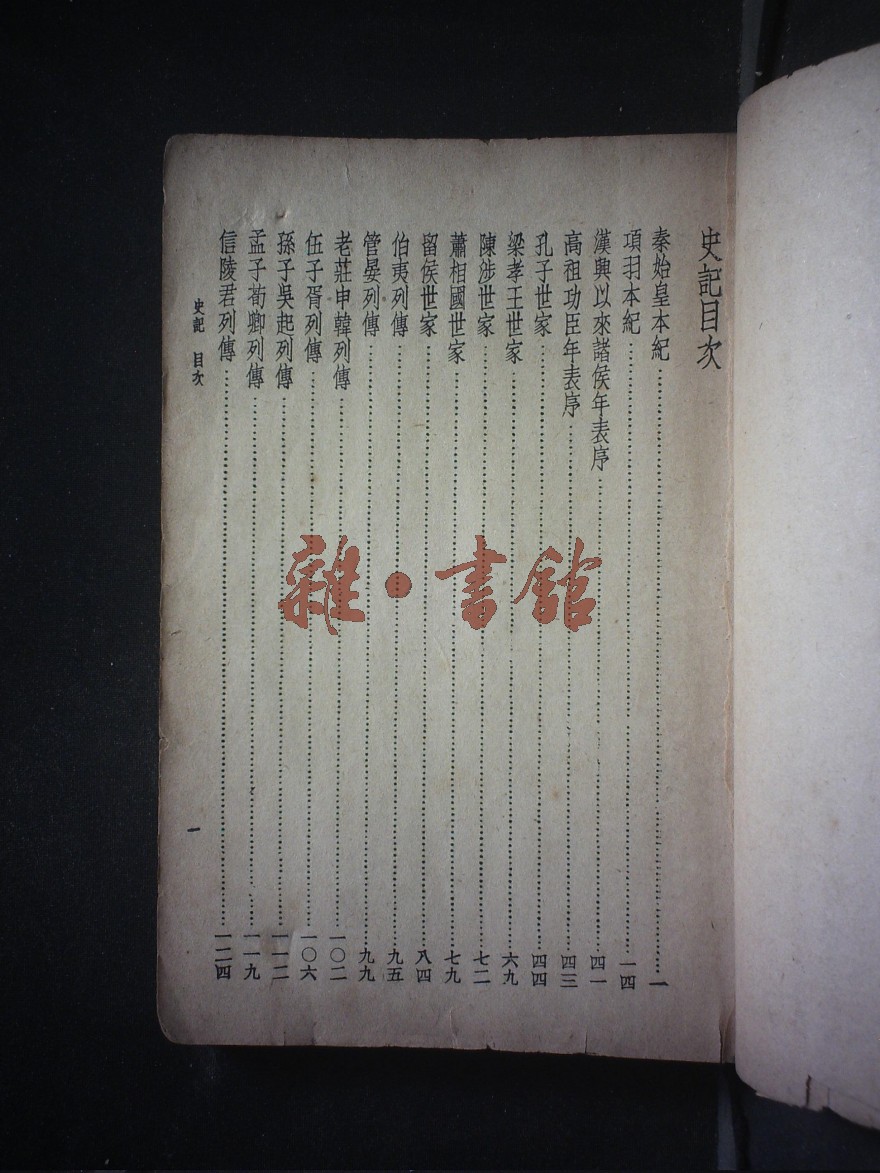 史記目次
秦始皇本紀……一
項羽本紀……一四
漢興以來諸侯年表序……四一
高祖功臣年表序……四三
孔子世家……四四
梁孝王世家……六九
陳涉世家……七二
蕭相國世家……七九
留侯世家……八四
伯夷列傳……九五
管晏列傳……九九
老莊申韓列傳……一〇二
伍子胥列傳……一〇六
孫子吳起列傳……一一二
孟子荀卿列傳……一一九
信陵君列傳……一二四
史記 目次
一
雜·書館